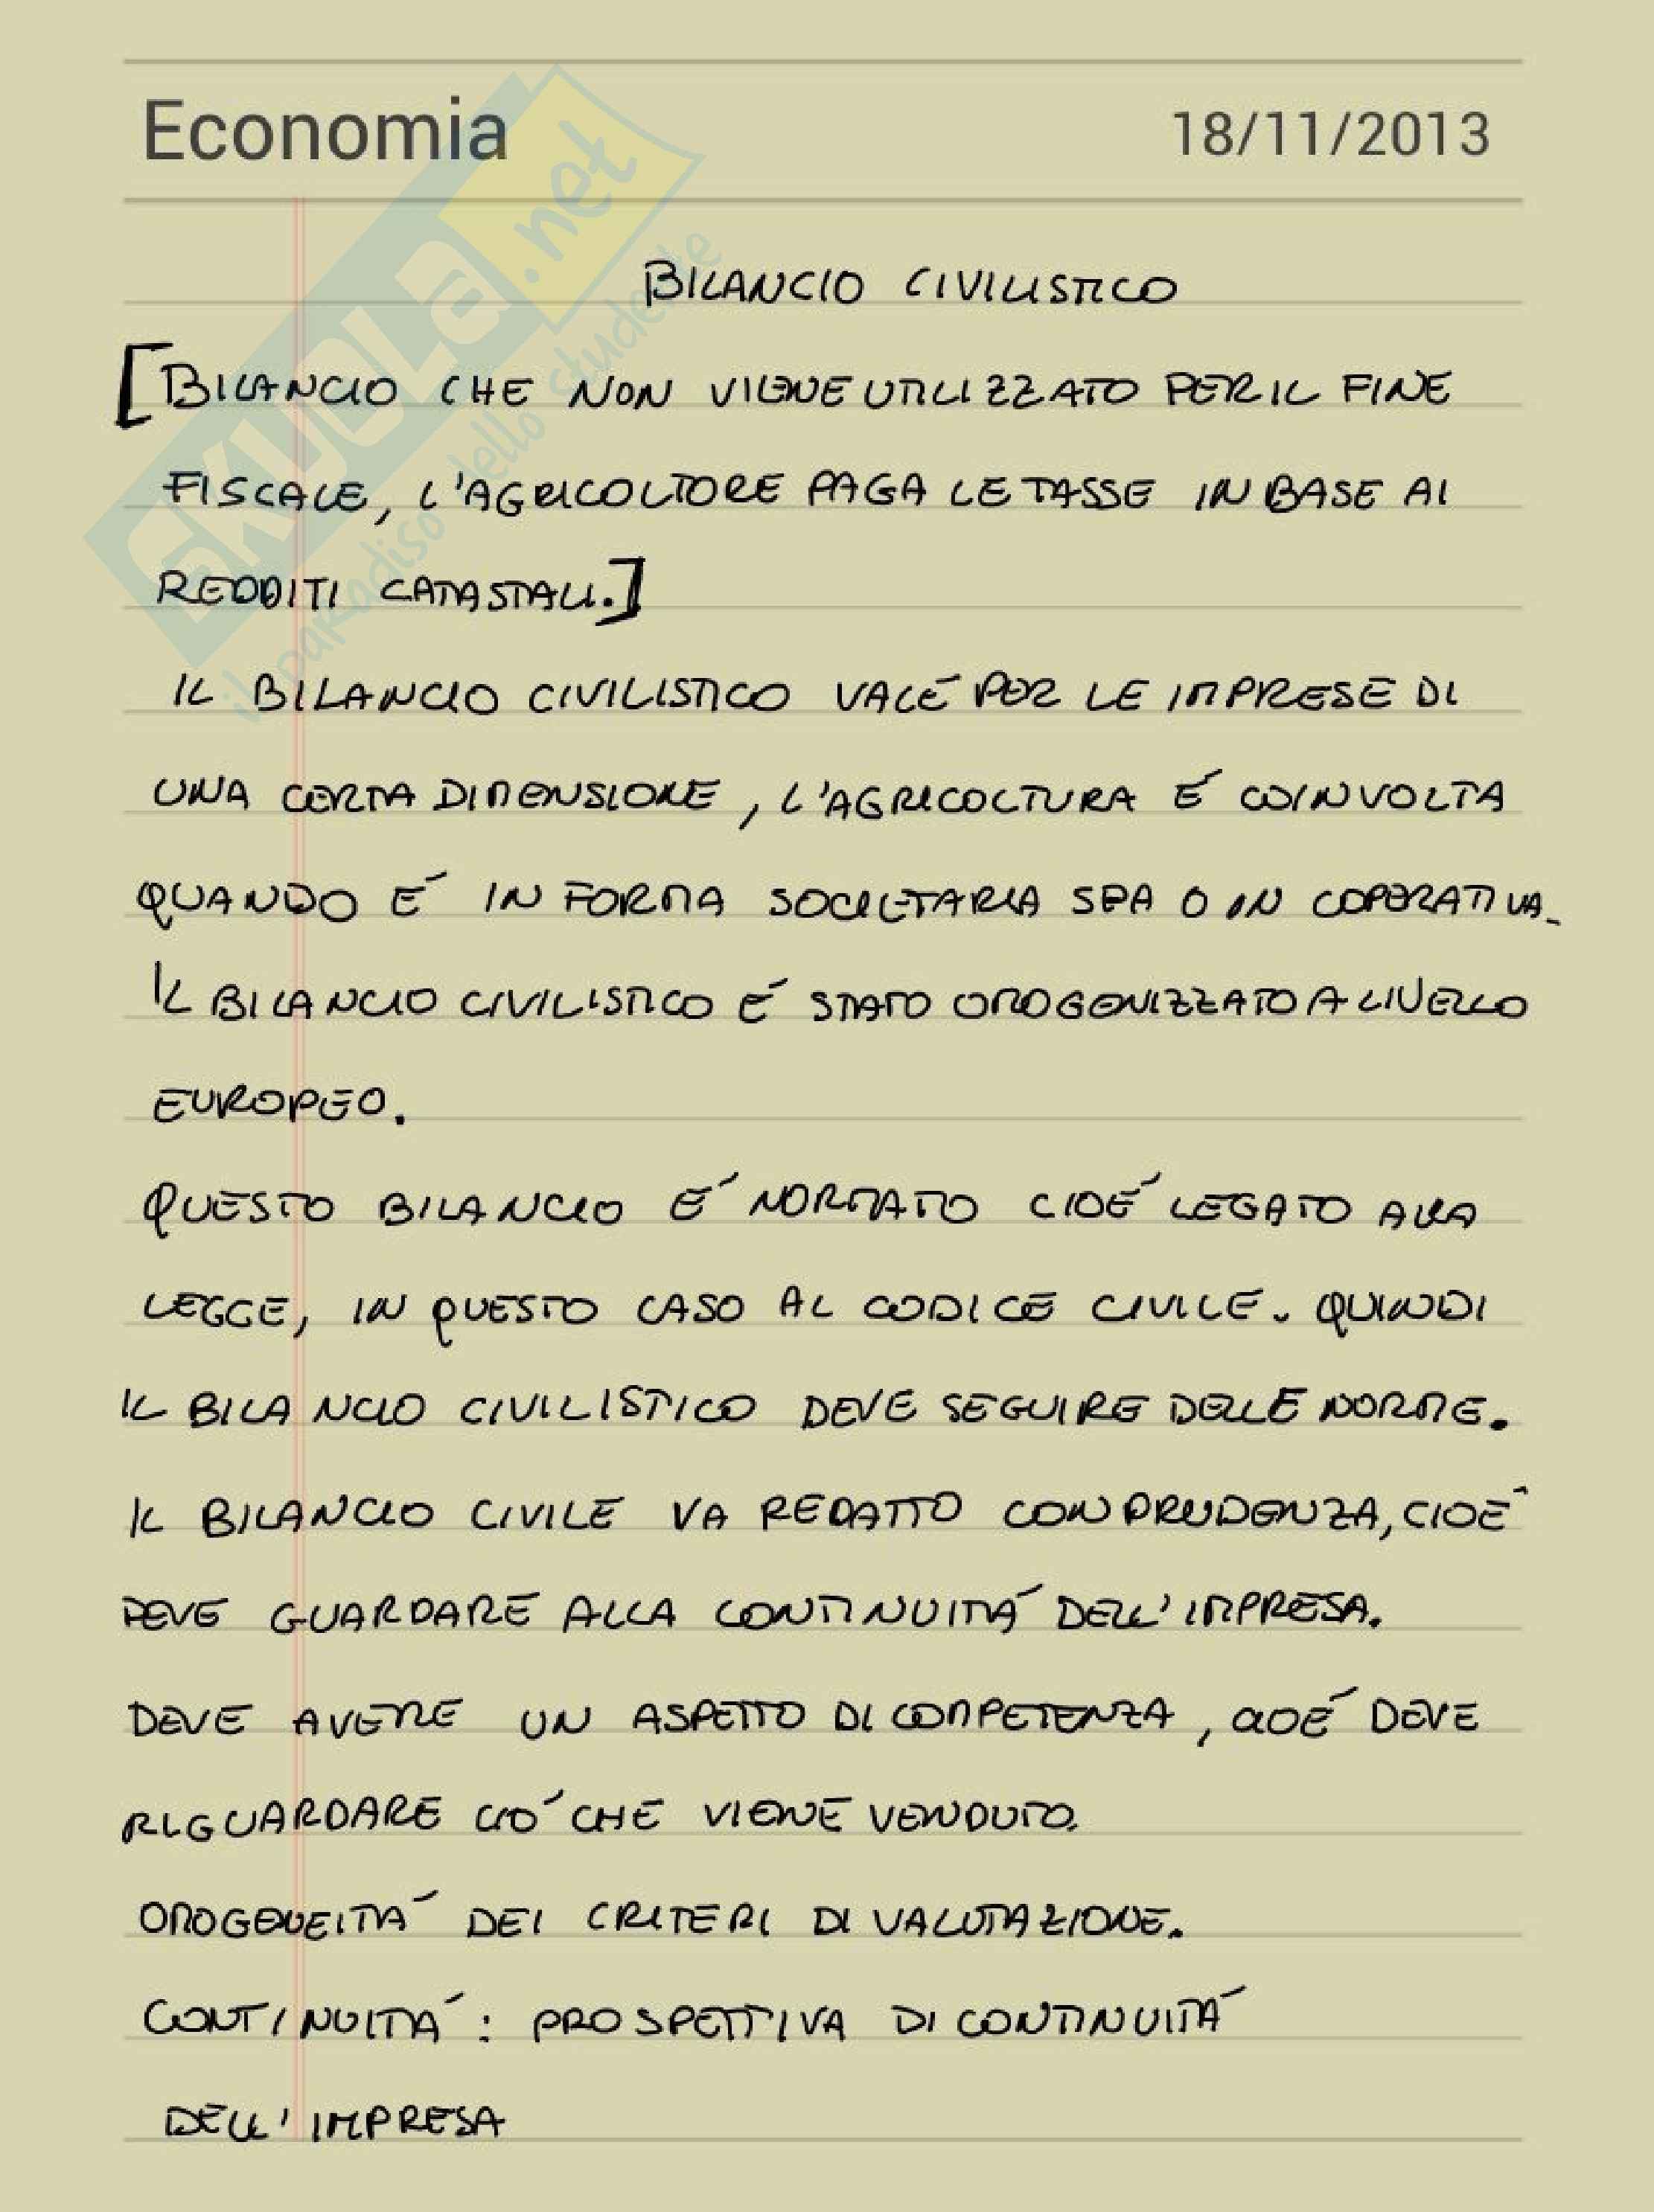 Economia
18/11/2013
SKUOLA.net
il paradiso dello studente
BILANCIO CIVILISTICO
[BILANCIO CHE NON VIENE UTILIZZATO PER IL FINE
FISCALE, L'AGRICOLTORE PAGA LE TASSE IN BASE AI
REDDITI CATASTALI.]
IL BILANCIO CIVILISTICO VALE PER LE IMPRESE DI
UNA CERTA DIMENSIONE, L'AGRICOLTURA É COINVOLTA
QUANDO É IN FORMA SOCIETARIA SPA O IN COPERATIVA.
IL BILANCIO CIVILISTICO É STATO OMOGENIZZATO A LIVELLO
EUROPEO.
QUESTO BILANCIO É NORMATO CIOÉ LEGATO ALLA
LEGGE, IN QUESTO CASO AL CODICE CIVILE. QUINDI
IL BILANCIO CIVILISTICO DEVE SEGUIRE DELLE NORME.
IL BILANCIO CIVILE VA REDATTO CON PRUDENZA, CIOÉ
DEVE GUARDARE ALLA CONTINUITÁ DELL'IMPRESA.
DEVE AVERE UN ASPETTO DI COMPETENZA, CIOÉ DEVE
RIGUARDARE CIÓ CHE VIENE VENDUTO.
OMOGENEITÁ DEI CRITERI DI VALUTAZIONE.
CONTINUITÁ: PROSPETTIVA DI CONTINUITÁ
DELL'IMPRESA